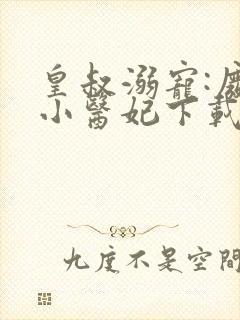 皇叔溺寵:
小醫妃下載
九度不是空間